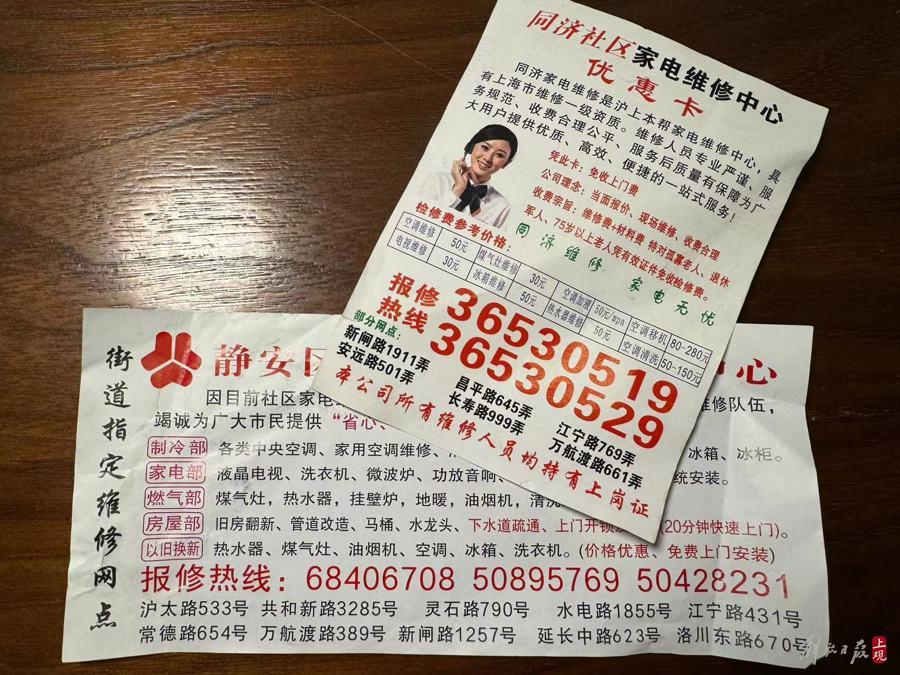 同济社区家电维修中心
优惠卡
同济家电维修是沪上本帮家电维修中心，具
有上海市维修一级资质。维修人员专业严谨、服
务规范、收费合理公平、服务后质量有保障为广
大用户提供优质、高效、便捷的一站式服务！
凭此卡：免收上门费
公司理念：当面报价、现场维修、收费合理
收费宗旨：维修费+材料费 特对孤寡老人、退休
军人、75岁以上老人凭有效证件免收检修费。
同济维修 家电无忧
检修费参考价格：
空调维修 50元 煤气灶维修 30元 空调加液 50元/mpa 空调移机 80-280元
电视维修 30元 冰箱维修 50元 热水器维修 50元 空调清洗 50-150元
报修热线
36530519
36530529
部分网点：
新闸路1911弄 昌平路645弄 江宁路769弄
安远路501弄 长寿路999弄 万航渡路661弄
本公司所有维修人员均持有上岗证
街道指定维修网点
静安区 中心
因目前社区家电 维修队伍，
竭诚为广大市民提供“省心、
制冷部 各类中央空调、家用空调维修、 冰箱、冰柜。
家电部 液晶电视、洗衣机、微波炉、功放音响 统安装。
燃气部 煤气灶，热水器，挂壁炉，地暖，油烟机，清洗
房屋部 旧房翻新、管道改造、马桶、水龙头、下水道疏通、上门开锁 (20分钟快速上门)。
以旧换新 热水器、煤气灶、油烟机、空调、冰箱、洗衣机。(价格优惠、免费上门安装)
报修热线：68406708 50895769 50428231
沪太路533号 共和新路3285号 灵石路790号 水电路1855号 江宁路431号
常德路654号 万航渡路389号 新闸路1257号 延长中路623号 洛川东路670号
解放日报 上观